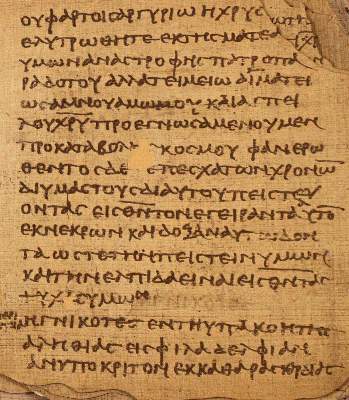 ΟΥΦΑΡΤΟΙΣΑΡΓΥΡΙΩΗΧΡΥΣ
ΕΛΥΤΡΩΘΗΤΕΕΚΤΗΣΜΑΤΕΑ
ΥΜΩΝΑΝΑΣΤΡΟΦΗΣΠΑΤΡΟΠΑ
ΡΑΔΟΤΟΥΑΛΛΑΤΕΙΜΕΙΩΑΙΜΑΤΕΙ
ΩΣΑΜΝΟΥΑΜΩΜΟΥΚΑΙΑΣΠΕΙ
ΛΟΥΧΡΥΠΡΟΕΓΝΩΣΑΜΕΝΟΥΜΕΝ
ΠΡΟΚΑΤΑΒΟΛ ΚΟΣΜΟΥΦΑΝΕΡΩ
ΘΕΝΤΟΣΔΕ ΕΠΕΣΧΑΤΩΝΧΡΟΝΩ
ΔΙΥΜΑΣΤΟΥΣΔΙΑΥΤΟΥΠΕΙΣΤΕΥ
ΟΝΤΑΣΕΙΣΘΝΤΟΝΕΓΕΙΡΑΝΤΑΑΥΤΟ
ΕΚΝΕΚΡΩΝΚΑΙΔΟΞΑΝΑΥΤ ΔΟΝ
ΤΑΩΣΤΕΤΗΝΠΕΙΣΤΕΙΝΥΜΩΝ
ΚΑΙΤΗΝΕΛΠΙΔΑΕΙΝΑΙΕΙΣΘΝΤΑΣ
ΨΥΧ ΣΥΜΩ
ΗΓΝΙΚΟΤΕΣΕΝΤΗΥΠΑΚΟΗΤΗΣ
ΑΛΗΘΙΑΣΕΙΣΦΙΛΑΔΕΛΦΙΑΝ
ΑΝΥΠΟΚΡΙΤΟΝΕΚΚΑΘΑΡΑΣΚΡΔΙΑΣ